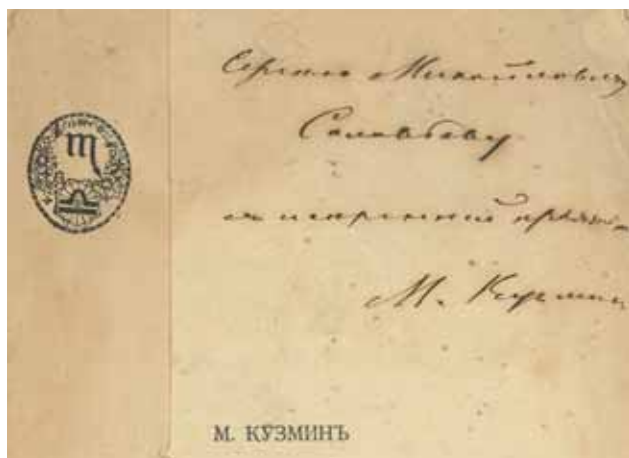 Сергѣю Михайлович
Соловьеву
искренней
М. Кузмин
М. КУЗМИНЪ